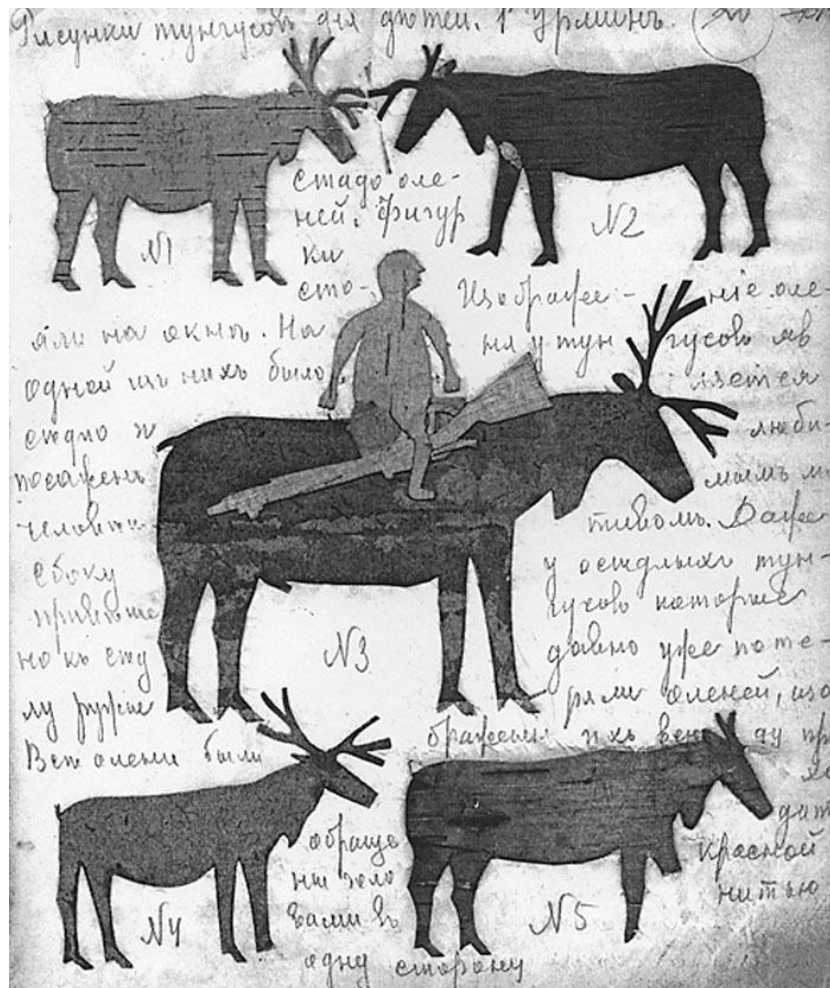 Рисунки тунгусовъ для дѣтей. Р Урминъ.
№1
стадо оле-
ней. Фигур
ки
сто-
яли на окнѣ. На
одной изъ нихъ было
сѣдло и
посаженъ
человѣкъ
сбоку
привѣше
но къ сѣд
лу ружье
Всѣ олени были
обраще
ны голо
вами въ
одну сторону
№2
Изображе- ніе оле-
ня у тун гусовъ яв
ляется
люби-
мымъ мо
тивомъ. Даже
у осѣдлыхъ тун-
гусовъ которые
давно уже поте-
ряли оленей, изо
браженія ихъ
дят
красной
нитью
№3
№4
№5